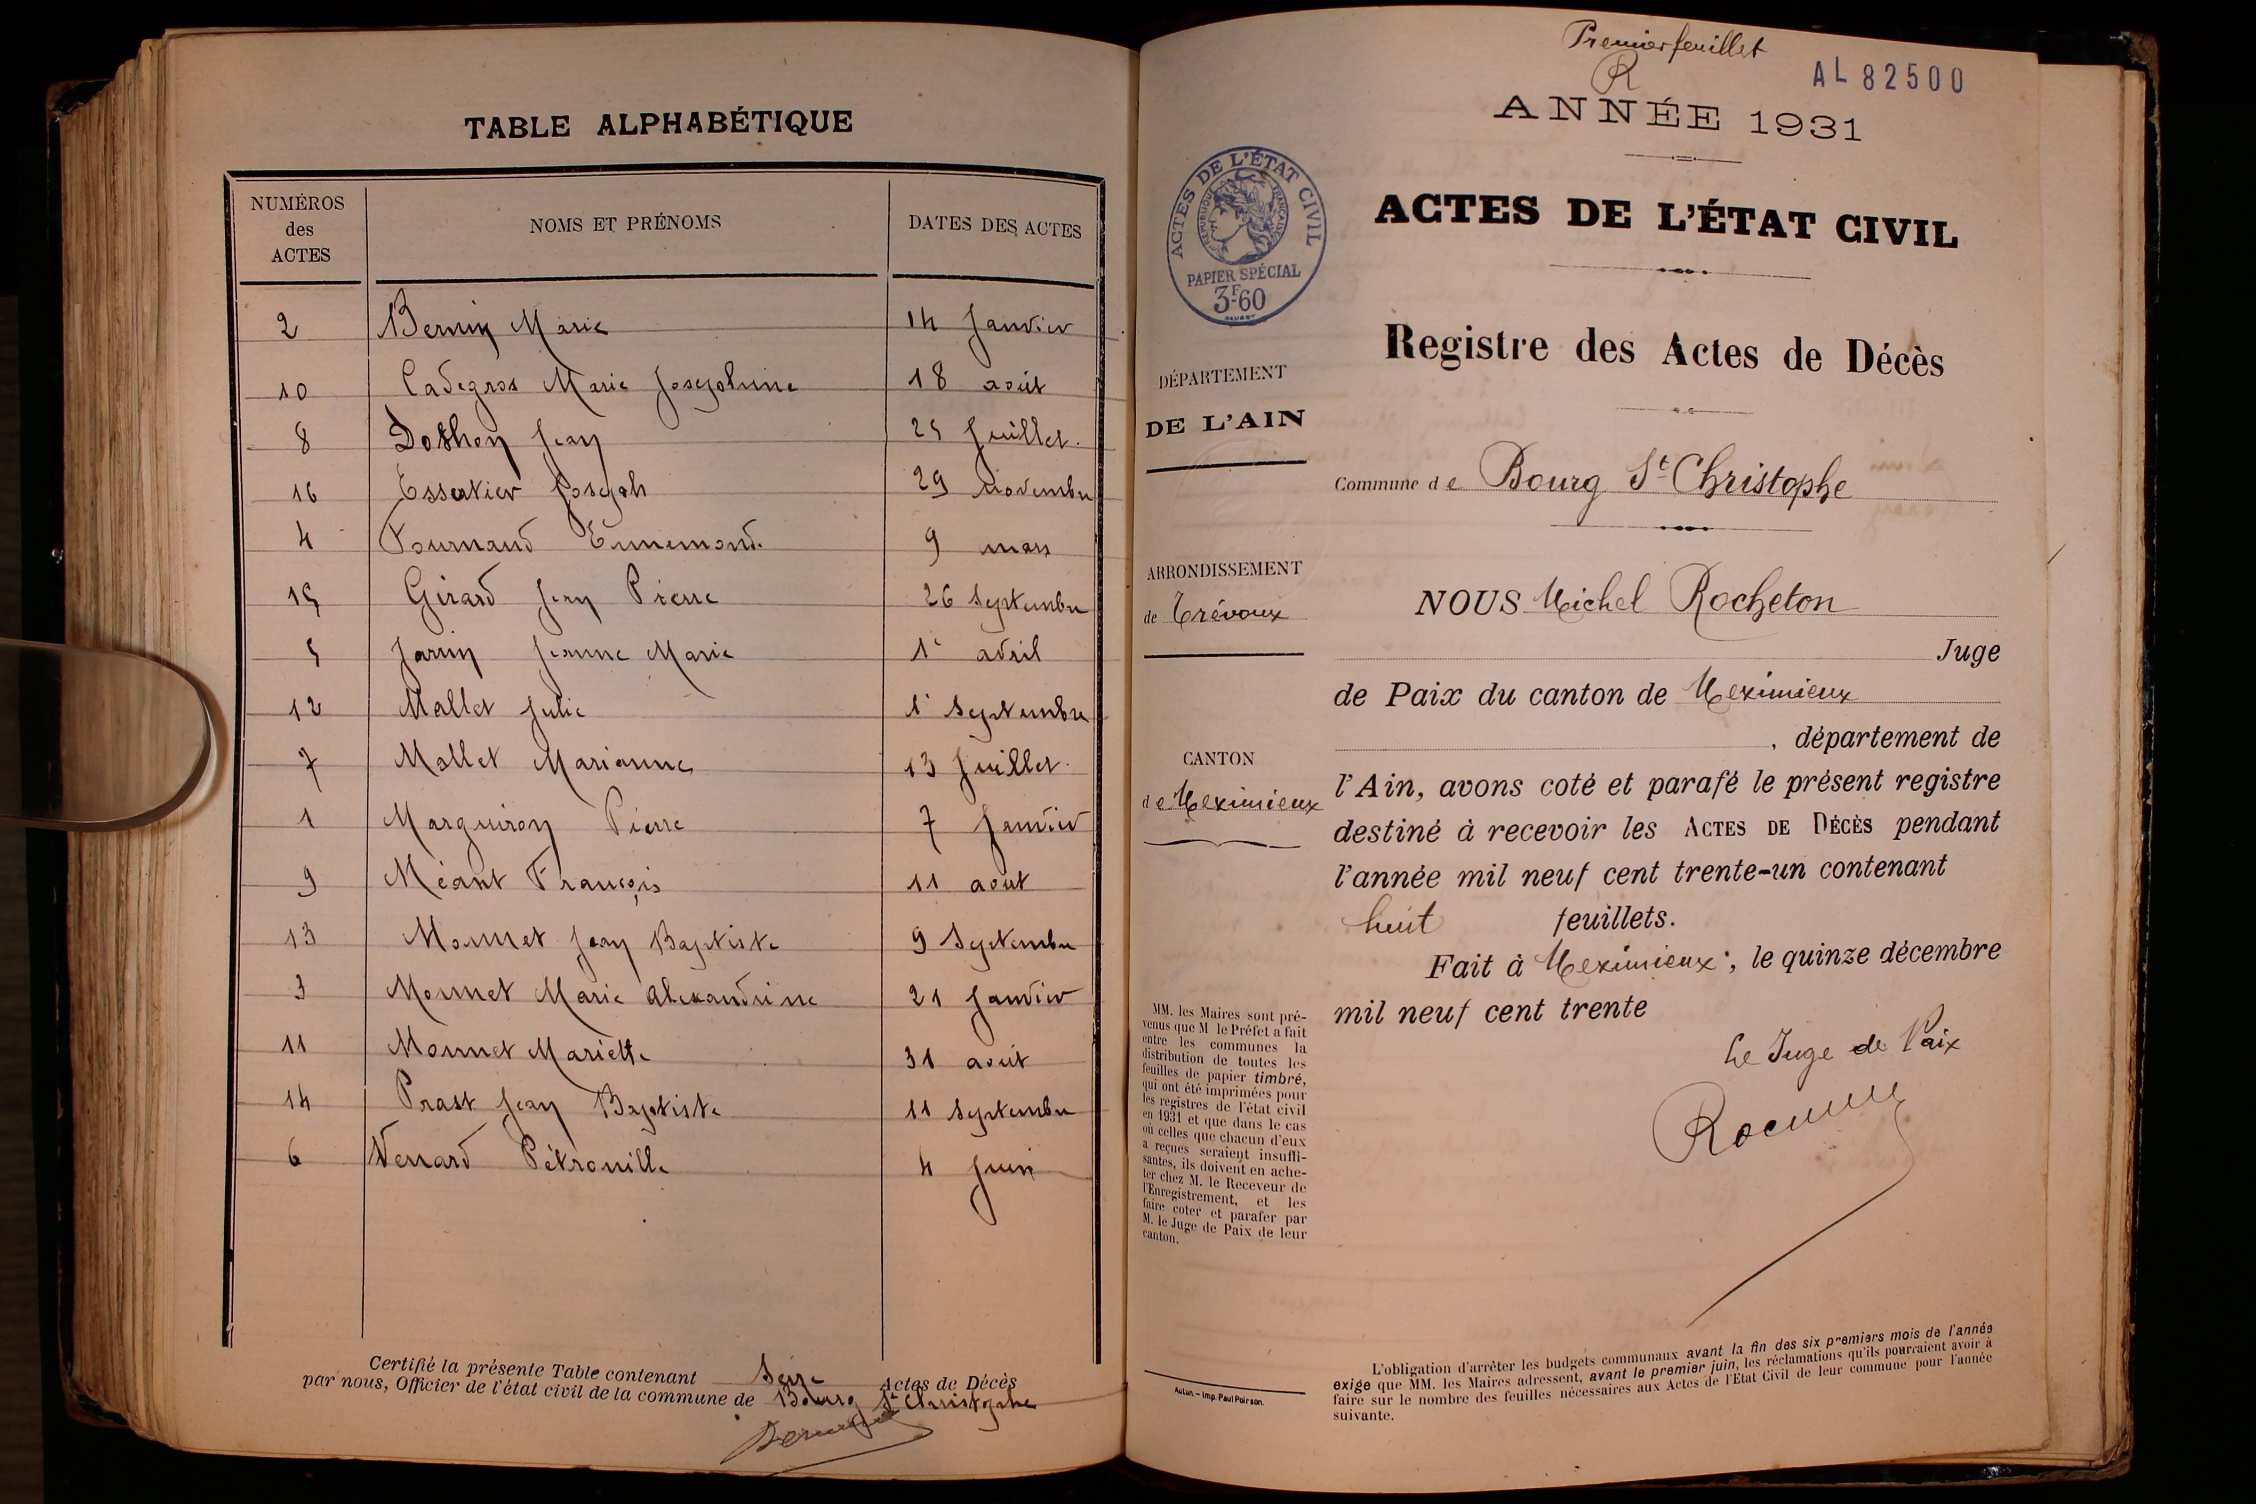 TABLE ALPHABÉTIQUE
NUMÉROS
des
ACTES
NOMS ET PRÉNOMS
DATES DES ACTES
2 Bernin Marie 14 Janvier
10 Cadegros Marie Josephine 18 août
8 Dothon Jean 25 Juillet.
16 Essertier Joseph 29 novembre
4 Fournand Ennemond. 9 mars
15 Girard Jean Pierre 26 Septembre
5 Jarrin Jeanne Marie 1e avril
12 Mallet Julie 1e Septembre
7 Mallet Marianne 13 Juillet.
1 Marguiron Pierre 7 Janvier
9 Méant François 11 aout
13 Monnet Jean Baptiste 9 Septembre
3 Monnet Marie Alexandrine 21 Janvier
11 Monnet Mariette 31 août
14 Prast Jean Baptiste 11 Septembre
6 Venard Pétronille 4 Juin
Certifié la présente Table contenant Seize Actes de Décès
par nous, Officier de l'état civil de la commune de Bourg St Christophe
Premier feuillet
R
AL 82500
ANNÉE 1931
ACTES DE L'ÉTAT CIVIL
Registre des Actes de Décès
Commune de Bourg St Christophe
NOUS Michel Rocheton
Juge
de Paix du canton de Meximieux
, département de
l'Ain, avons coté et parafé le présent registre
destiné à recevoir les ACTES DE DÉCÈS pendant
l'année mil neuf cent trente-un contenant
huit feuillets.
Fait à Meximieux, le quinze décembre
mil neuf cent trente
Le Juge de Paix
ACTES DE L'ÉTAT CIVIL
RÉPUBLIQUE FRANÇAISE
PAPIER SPÉCIAL
3F60
DÉPARTEMENT
DE L'AIN
ARRONDISSEMENT
de Trévoux
CANTON
de Meximieux
MM. les Maires sont pré-
venus que M le Préfet a fait
entre les communes la
distribution de toutes les
feuilles de papier timbré,
qui ont été imprimées pour
les registres de l'état civil
en 1931 et que dans le cas
où celles que chacun d'eux
a reçues seraient insuffi-
santes, ils doivent en ache-
ter chez M. le Receveur de
l'Enregistrement, et les
faire coter et parafer par
M. le Juge de Paix de leur
canton.
Autun. – Imp. Paul Poirson.
L'obligation d'arrêter les budgets communaux avant la fin des six premiers mois de l'année
exige que MM. les Maires adressent, avant le premier juin, les réclamations qu'ils pourraient avoir à
faire sur le nombre des feuilles nécessaires aux Actes de l'Etat Civil de leur commune pour l'année
suivante.